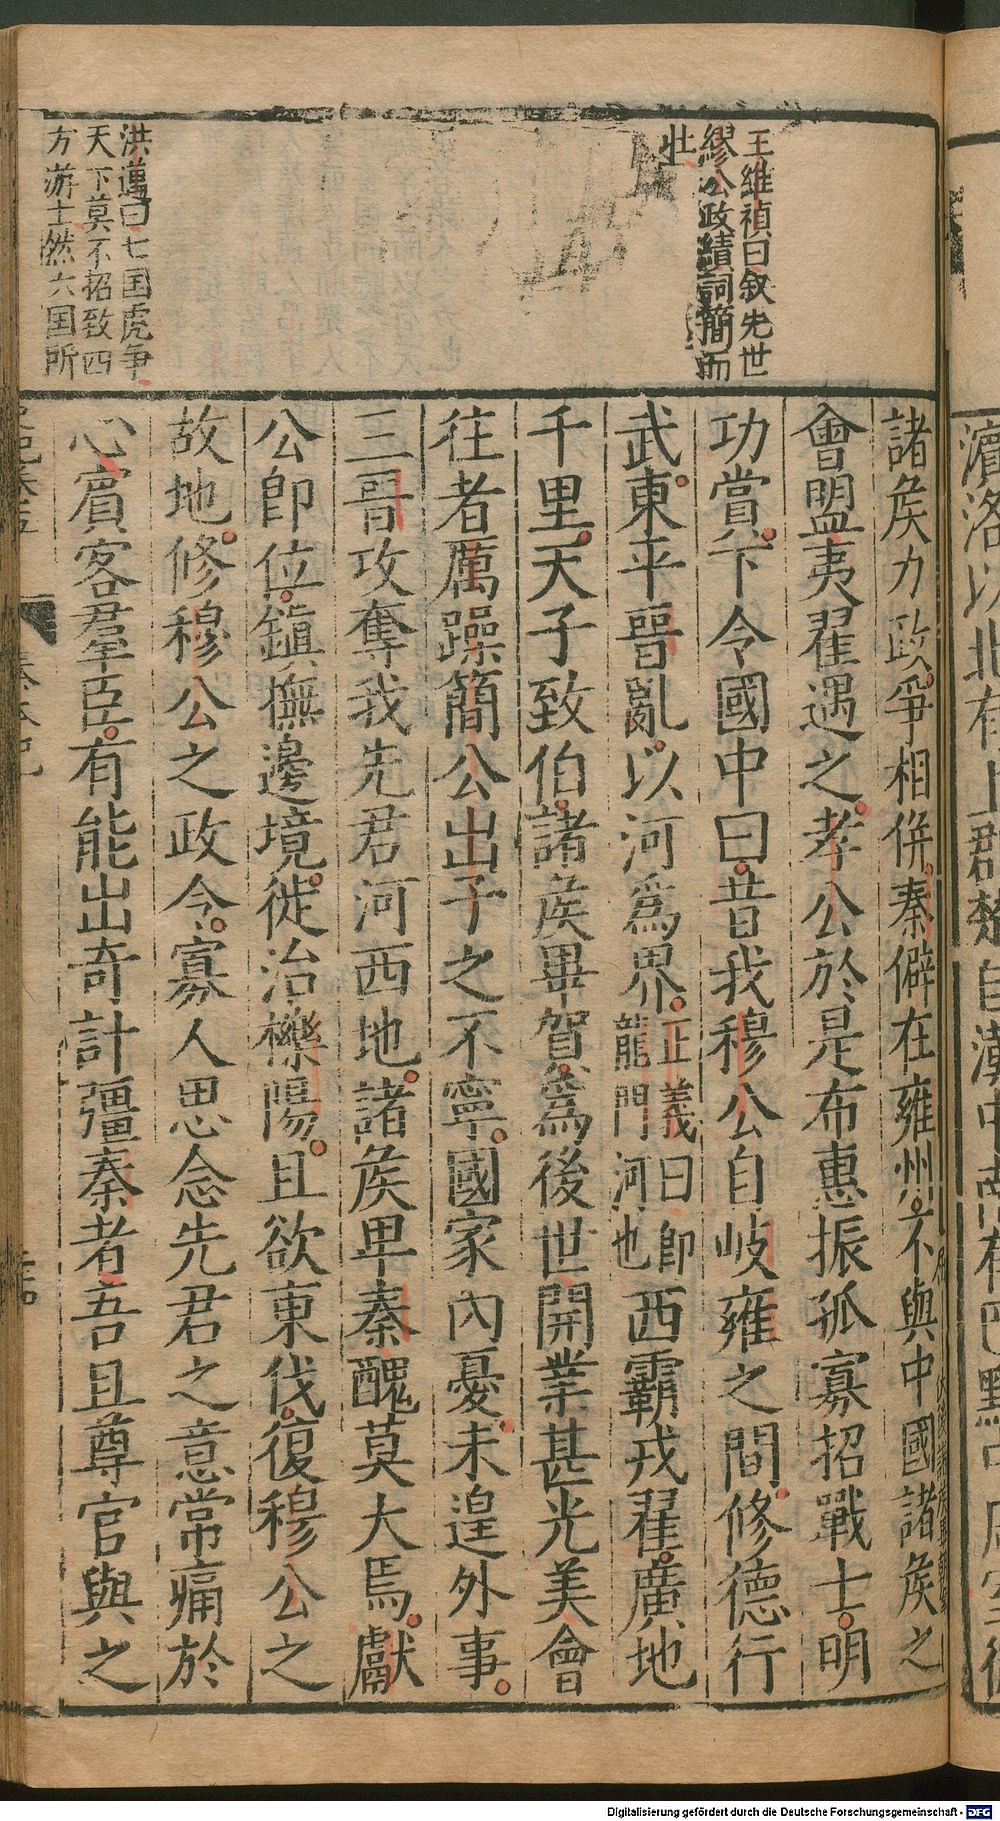 王維禎曰叙先世
繆公政績詞簡而
壮
洪邁曰七国虎争
天下莫不招致四
方游士然六国所
諸矦力政争相倂秦僻在雍州不與中國諸矦之
會盟夷翟遇之孝公於是布惠振孤寡招戰士明
功賞下令國中曰昔我穆公自岐雍之間修德行
武東平晉亂以河爲界正義曰即龍門河也西霸戎翟廣地
千里天子致伯諸矦畢賀爲後世開業甚光美會
往者厲躁簡公出子之不寧國家內憂未遑外事
三晉攻奪我先君河西地諸矦卑秦醜莫大焉獻
公即位鎭撫邊境徙治櫟陽且欲東伐復穆公之
故地修穆公之政令寡人思念先君之意常痛於
心賓客羣臣有能出奇計彊秦者吾且尊官與之
Digitalisierung gefördert durch die Deutsche Forschungsgemeinschaft - DFG